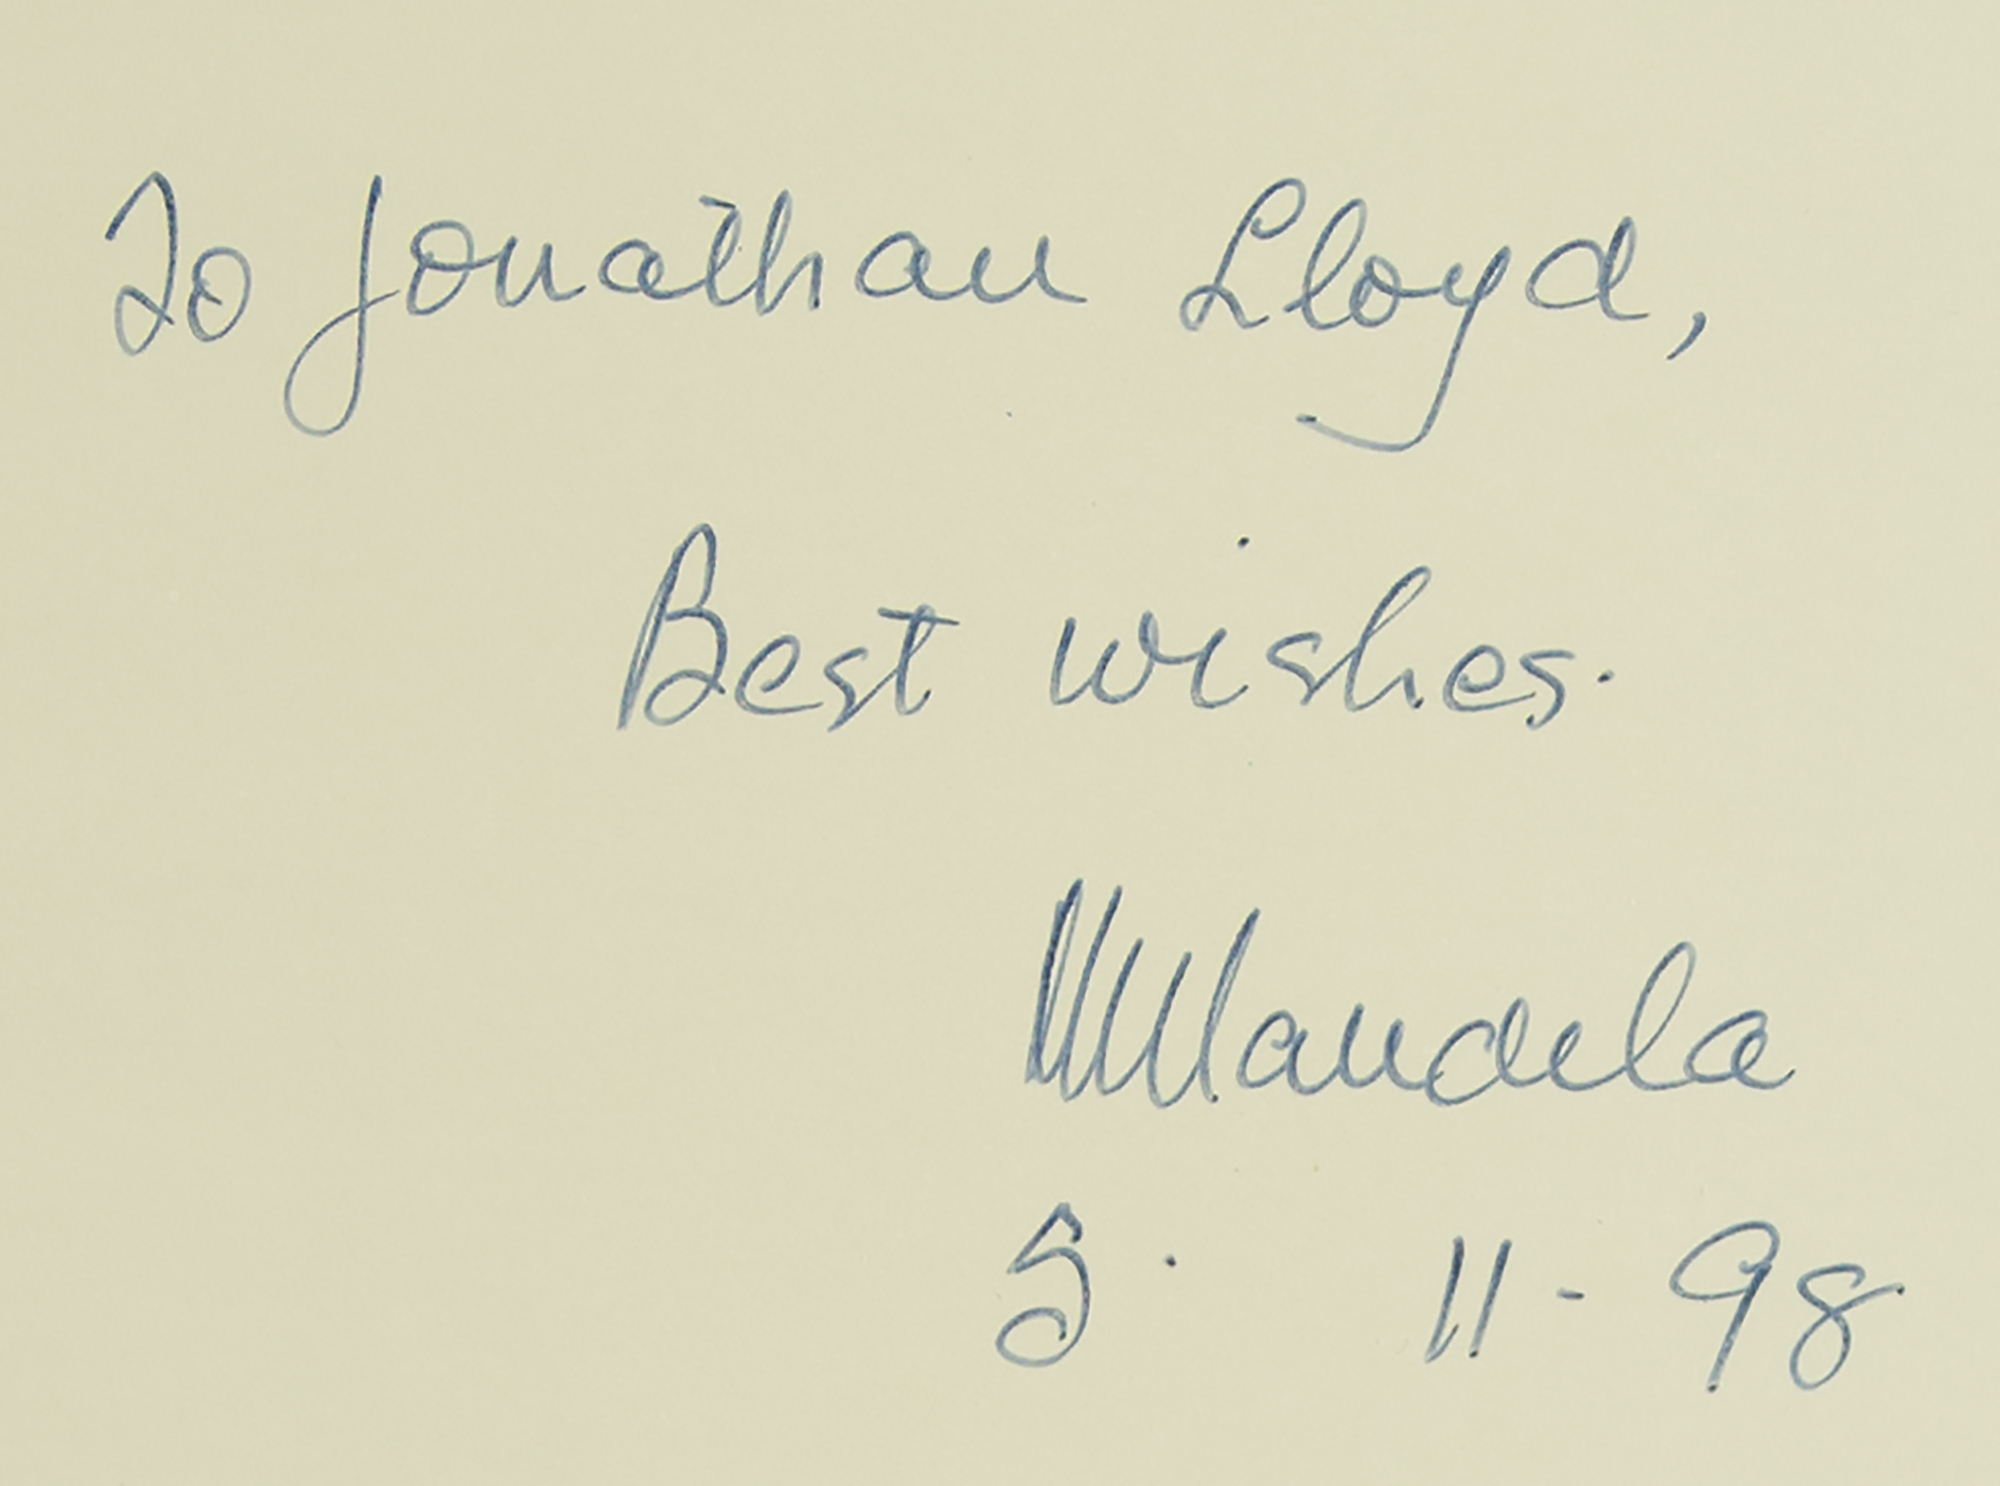 To Jonathan Lloyd,
Best wishes.
NMandela
5. 11-98